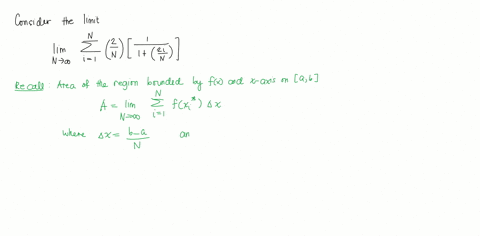 Consider the limit
lim N→∞ ∑ i=1 N (2/N) [ 1 / (1 + (2i/N)) ]
Recall : Area of the region bounded by f(x) and x-axis on [a,b]
A = lim N→∞ ∑ i=1 N f(xi*) Δx
where Δx = b-a / N an